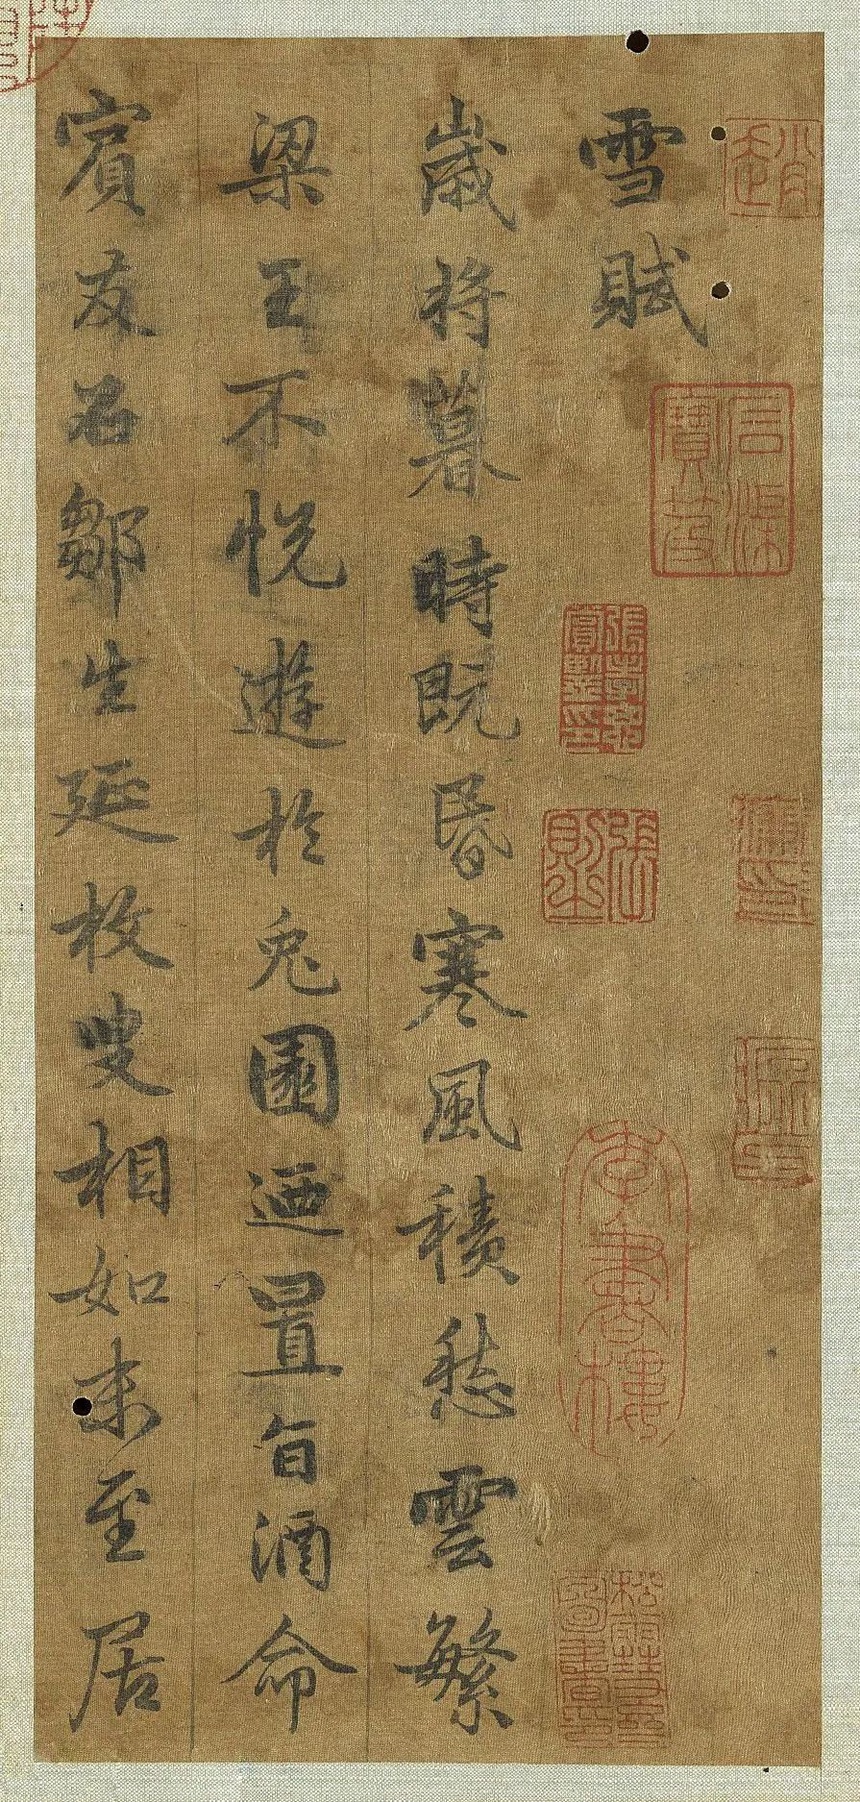 雪賦
歲將暮時既昏寒風積愁雲繁
梁王不悅遊於兔園迺置旨酒命
賓友召鄒生延枚叟相如末至居